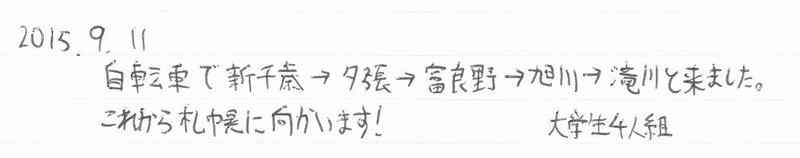 2015.9.11
自転車で新千歳→夕張→富良野→旭川→滝川と来ました。
これから札幌に向かいます! 大学生4人組